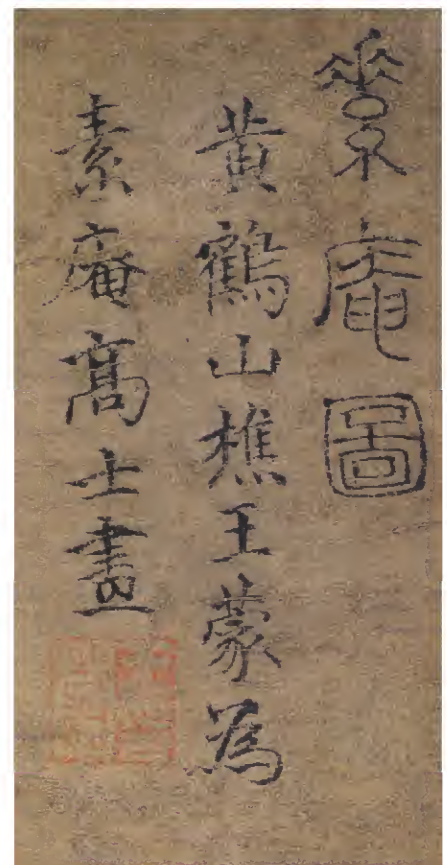 素庵圖
黃鶴山樵王蒙為
素庵高士畫